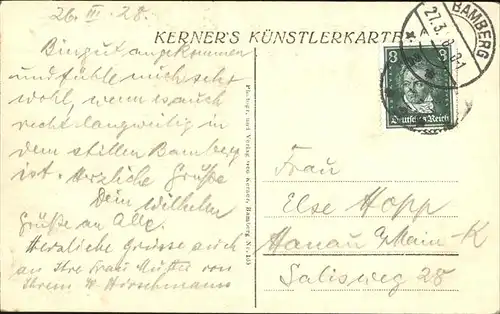 26. III. 28.
KERNER'S KÜNSTLERKARTE
BAMBERG
27.3.
8
8
Deutsches Reich
Bin gut angekommen
und fühle mich sehr
wohl, wenn es auch
recht langweilig in
dem stillen Bamberg
ist. Herzliche Grüße
Dein Wilhelm
Grüße an Alle.
Herzliche Grüsse auch
an Ihre Frau Mutter von
Ihrem W. Hörschmann
Photogr. und Verlag von Kerner, Bamberg Nr.
Frau
Else Hopp
Hanau a/Main-K
Salisweg 28